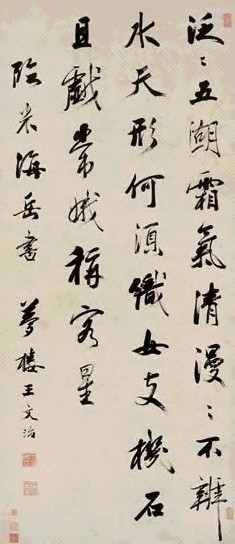 泛〻五湖霜氣清漫〻不辨
水天形何須織女支機石
且戲常娥稱客星
臨米海岳書 夢樓王文治